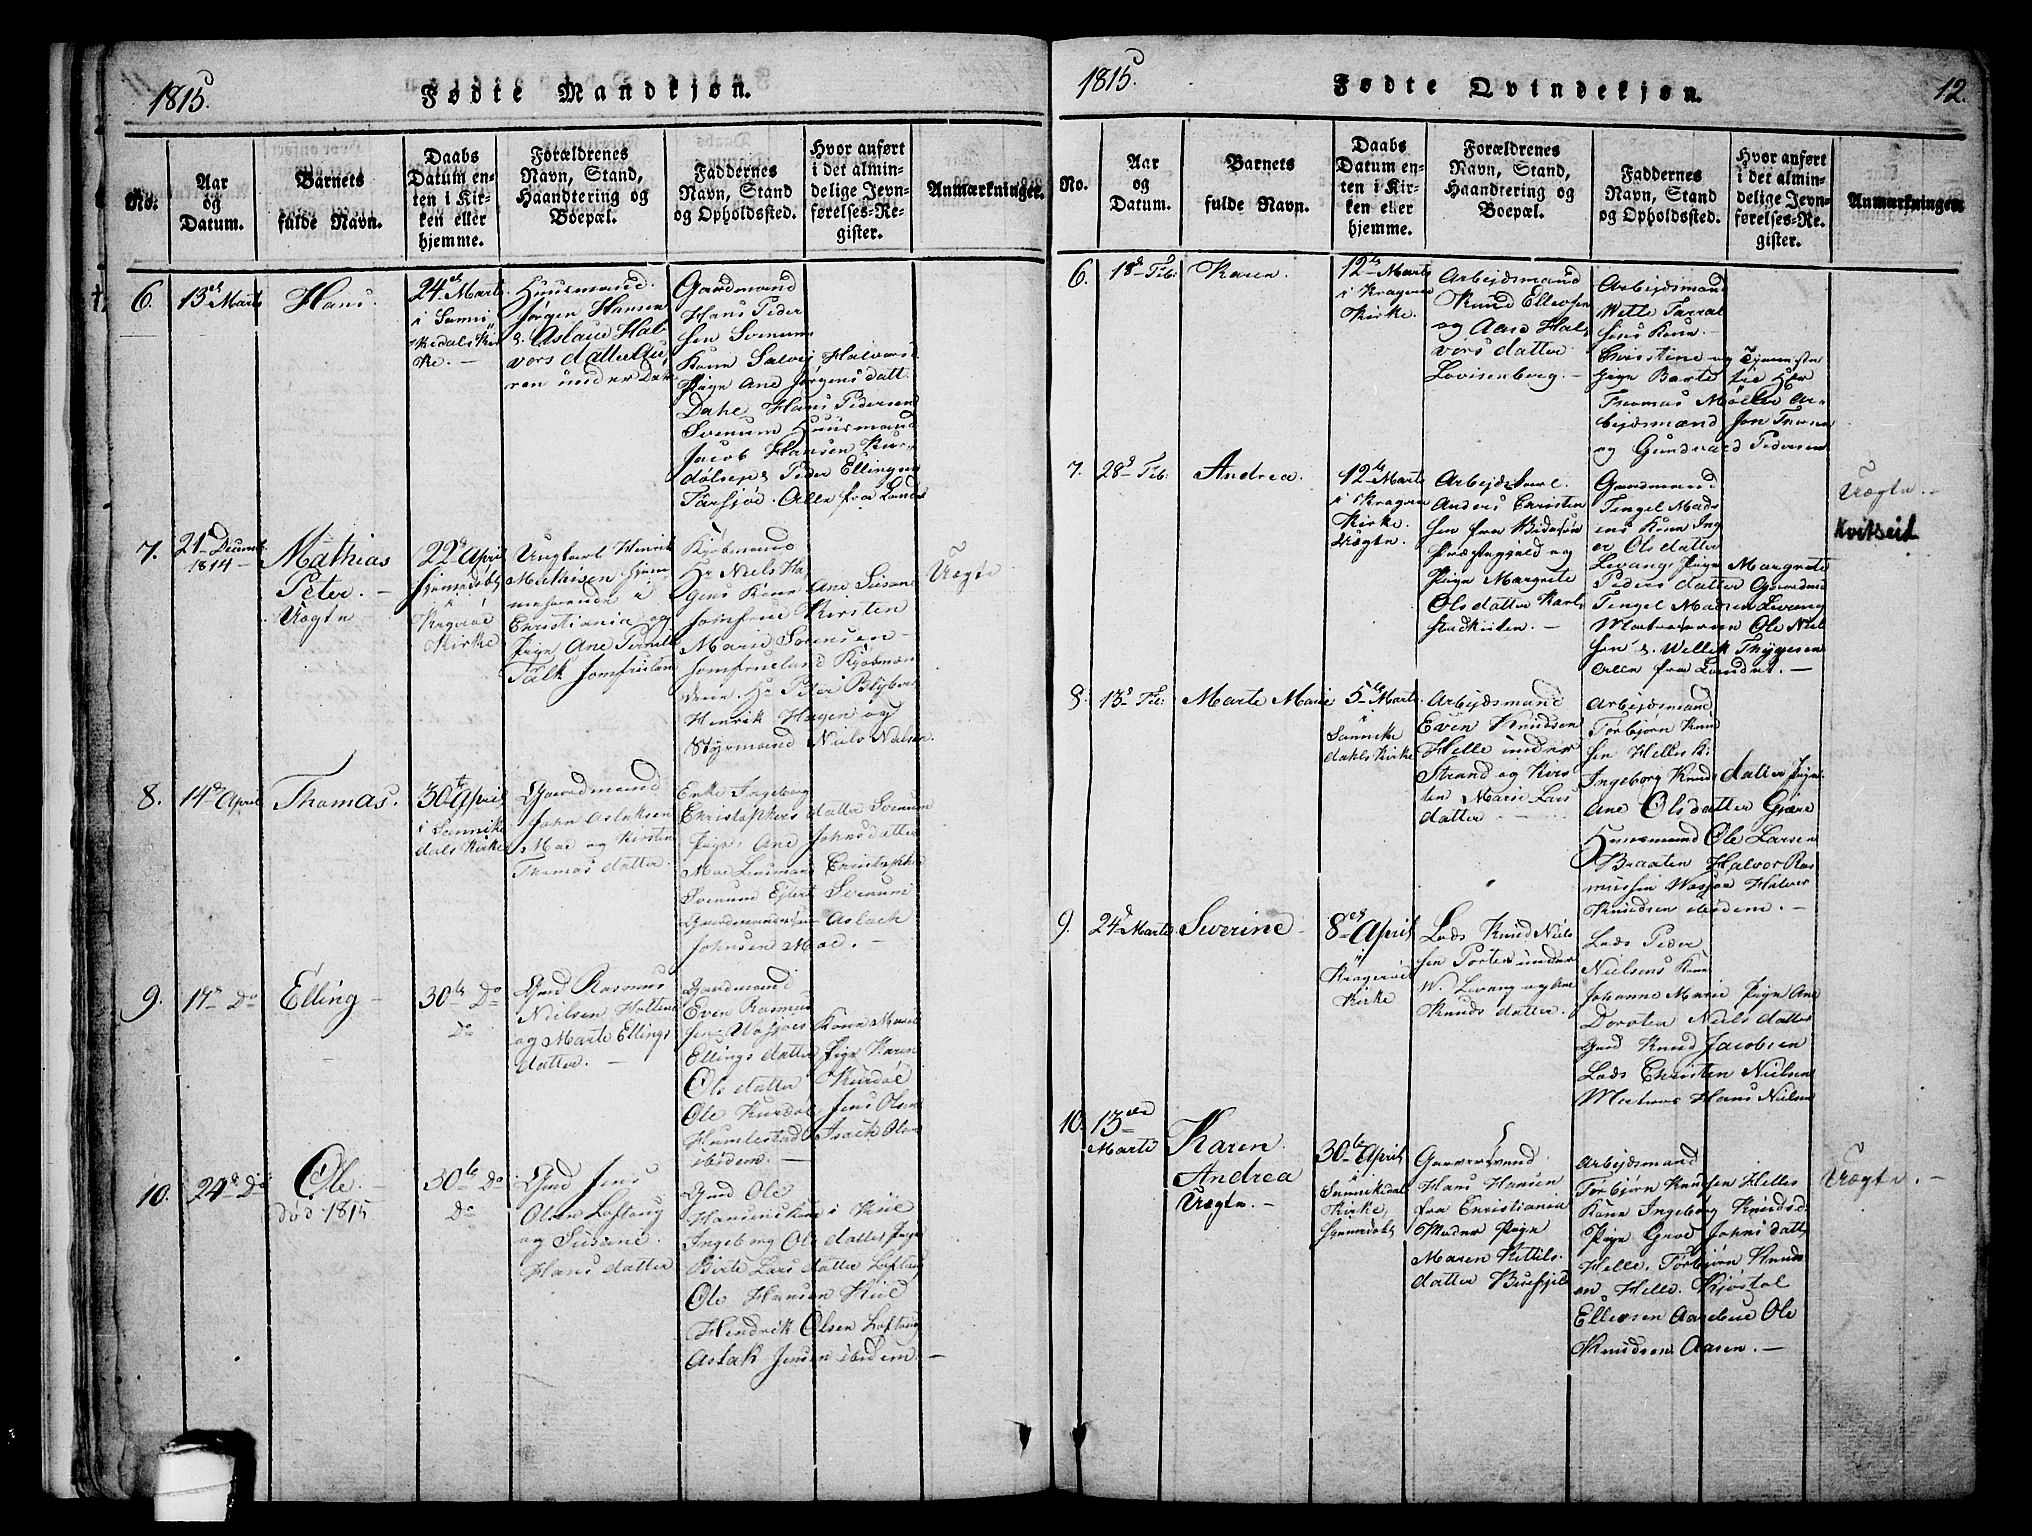 1815.
Fødte Mandkjøn.
No.
Aar
og
Datum.
Barnets
fulde Navn.
Daabs
Datum en-
ten i Kir-
ken eller
hjemme.
Forældrenes
Navn, Stand,
Haandtering og
Boepæl.
Faddernes
Navn, Stand
og Opholdssted.
Hvor anført
i det almin-
delige Jevn-
førelses-Re-
gister.
Anmærkninger.
6.
13de Marts
Hans.
24de Marts
i Sanni-
kedals Kir-
ke. —
Huusmand
Jørgen Hansen
& Aslaue Hal-
vorsdatter
under Dahl
Gaardmand
Hans Peder
sen Svenum
Kone Salvej Halvors
Pige Ane Jørgens datt.
Dahl, Hans Pedersen
Svenum Huusmand
Jacob Hansen Kur-
dølen & Peder Ellingsen
Tarsjøe. Alle fra Landet
7.
21 Decemb.
1814 —
Mathias
Peter. —
Uægte —
22de April
hjemmedøbt
i
Kragerøe
Kirke
Ungkarl Henrik
Mathisen hjem-
mehørende i
Christiania og
Pige Ane Pernille
Falk Jomfrueland
Kjøbmand
Hr Niels Ha-
gens Kone Ane Susane
Jomfrue Kirsten
Marie Sørensen —
Jomfrueland Kjøbmæn
dene Hr Peter Blyberg
Henrik Hagen og
Styrmand Niels Nielsen.
Uægte
8.
14de April
Thomas.
30te April
i Sannike
dals Kirke
Gaardmand
John Aslaksen
Moe og Kirsten
Thomas datter.
Enke Ingeborg
Christophers datter Svenum
Pige Ane Johns datter
Moe Lensmand Christopher
Svenum Ejlert Svenum
Gaardmandssøn Aslack
Johnsen Moe. —
9.
17de Do
Elling —
30te Do
Do
Gmd Rasmus
Nielsen Holtene
og Marte Ellings
datter. —
Gaardmand
Even Rasmus
sen Vasjøes Kone Maria
Ellings datter Pige Karen
Ols datter Kurdøl
Ole Kurdøl Jens Olsen
Humlestad Isack Olsen
ibidem. —
10.
24de Do
Ole. —
død 1815
30te Do
Do
Gmd Jens
Olsen Loftoug
og Susane
Hans datter
Gmd Ole
Hansens Kone i Kiil
Ingeborg Ols datter Pige
Birte Lars datter Loftoug
Ole Hansen Kiil
Hendrik Olsen Loftoug
Aslak Jensen ibidem. —
1815.
Fødte Qvindekjøn.
12.
No.
Aar
og
Datum.
Barnets
fulde Navn.
Daabs
Datum en-
ten i Kir-
ken eller
hjemme.
Forældrenes
Navn, Stand,
Haandtering og
Boepæl.
Faddernes
Navn, Stand
og Opholdssted.
Hvor anført
i det almin-
delige Jevn-
førelses-Re-
gister.
Anmærkninger.
6.
18de Feb.
Karen.
12te Marts
i Kragerøe
Kirke.
Arbejdsmand
Knud Ellevsen
og Aase Hal-
vors datter
Lovisenberg. —
Arbejdsmand
Wettle Tarral
sens Kone
Christine og Tjeneste
pige Barte hos Hr
Thomas Møller Ar-
bejdsmænd Jon
og Gundvald Pedersen
7.
28de Feb.
Andrea.
12te Marts
i Kragerøe
Kirke.
Uægte
Arbejdskarl
Anders Christen
sen fra Hvidesøe
Præstegjeld og
Pige Margrete
Ols datter Karls
stadkiilen. —
Gaardmand
Tengel Mads
ens Kone Ing
er Ols datter
Levang, Pige Margrete
Peders datter Gaardmd
Tengel Madsen Levang
Matroserne Ole Niel
sen & Wellek Thygesen
Alle fra Landet. —
Uægte. —
Kvitseid
8.
13de Feb.
Marte Marie
5te Marts
i
Sannike
dahls Kirke
Arbejdsmand
Even Knudsen
Helle under
Strand og Kirs
ten Marie Lars
datter —
Arbejdsmand
Torbjørn Knud
sen Helles K:
Ingeborg Knuds datter Pige
Ane Ols datter Gjære
Huusmand Ole Larsen
Braaten Halvor Ras
mussen Wasjøe Halvor
Knudsen ibidem. —
9.
24de Marts
Severine —
8de April
i
Kragerøe
Kirke
Lods Knud Niels
sen Porter under
W. Levang og Ane
Knuds datter.
Lods Peder
Nielsens Kone
Johanne Marie Pige Ane
Dorotea Niels datter
Gmd Knud Jacobsen
Lods Christen Nielsen
Matros Hans Nielsen
10.
13de
Marts
Karen
Andrea
Uægte. —
30te April
i
Sannikedals
Kirke,
hjemmedøbt
Garversvend
Hans Hansen
fra Christiania
Moder Pige
Maren Kittils
datter Buefjeld
Arbejdsmand
Torbjørn Knudsen Helles
Kone Ingeborg Knudsd.
Pige Groe Johns datt.
Helle. Torbjørn Knuds
en Helle. Kjøstol
Ellevsen Aarebue Ole
Knudsen Aasen. —
Uægte. —